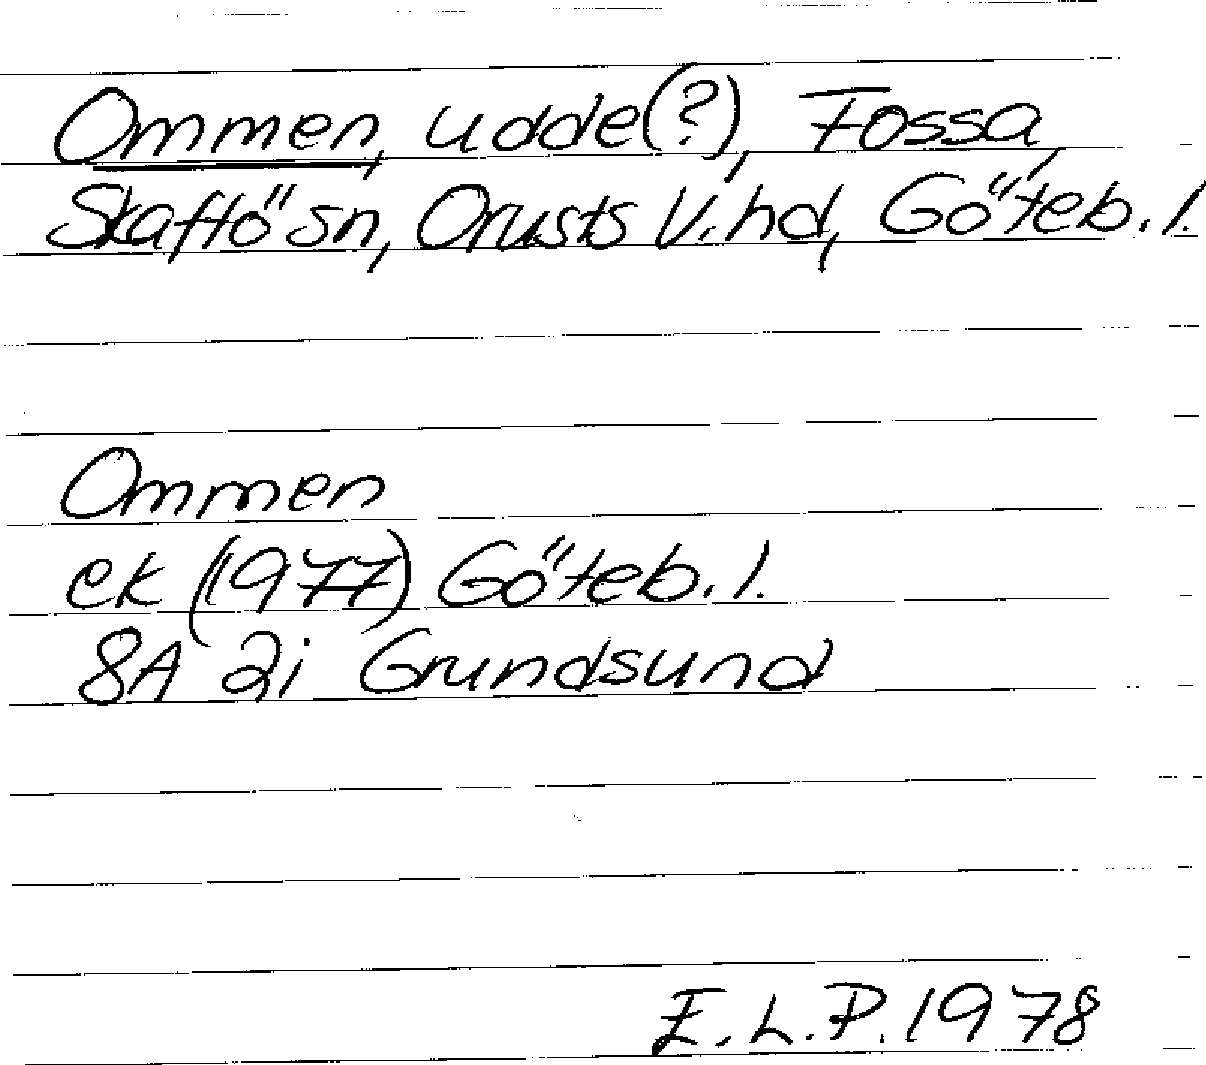 Ommen, udde(?), Fossa,
Skaftö sn, Orusts V. hd, Göteb. l.
Ommen
ek (1977) Göteb. l.
8A 2i Grundsund
E.L.P. 1978